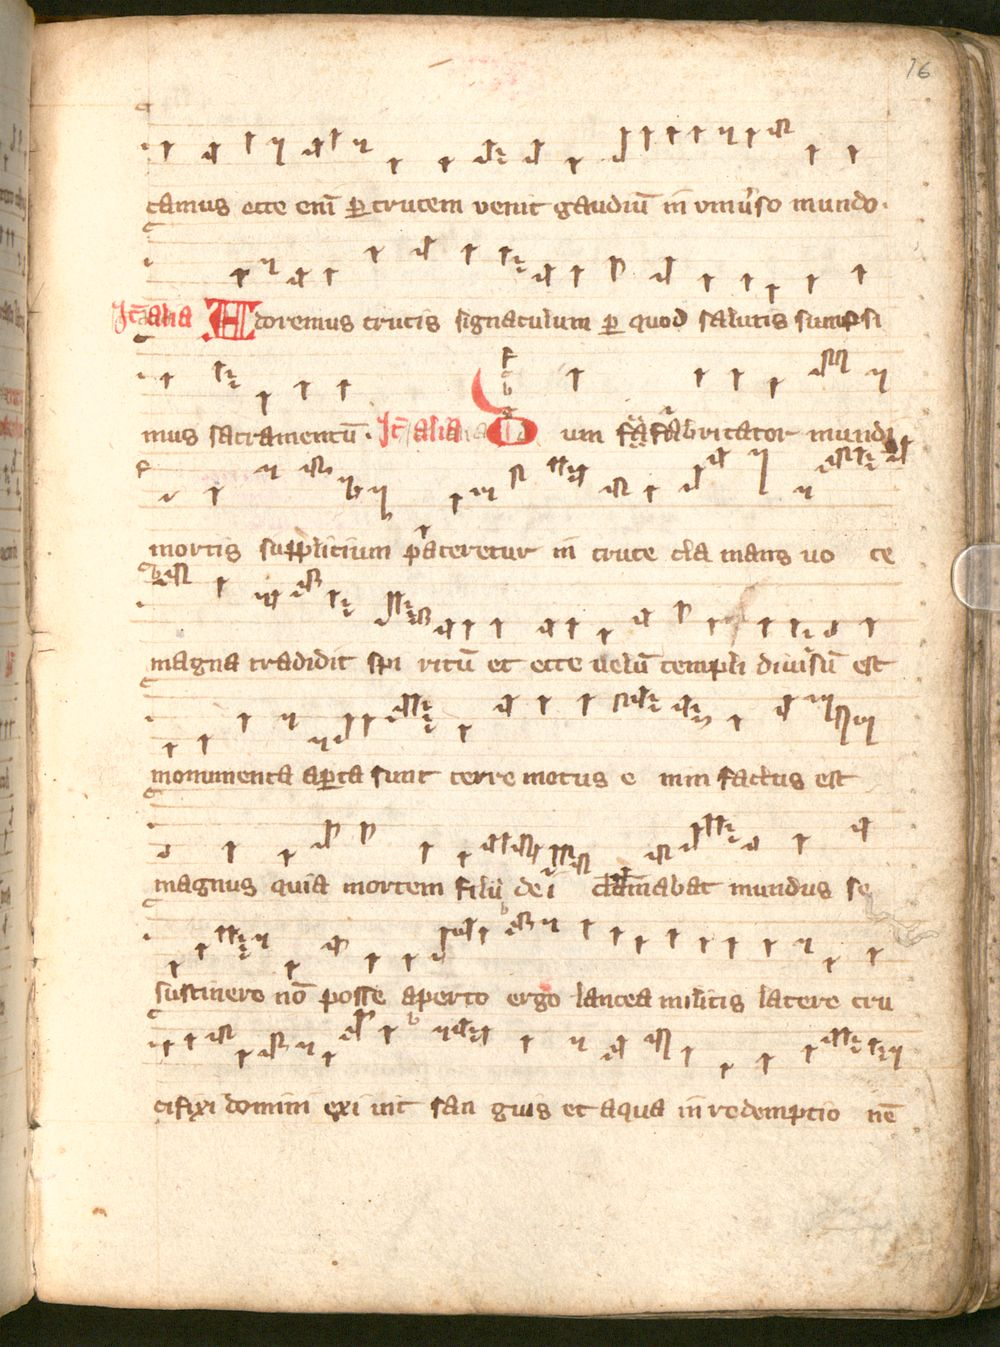 16
camus ecce enī ꝑ crucem venit gaudiū in vniu͛so mundo.
Itē alia Adoremus crucis signaculum ꝑ quod salutis sumpsi
mus sacramentū. Itē alia Dum fabricator mundi
mortis supplicium pateretur in cruce cla mans uo ce
magna tradidit spi ritū et ecce uelū templi diuisū est
monumenta aꝑta sunt terre motus e nim factus est
magnus quia mortem filii dei clamabat mundus se
sustinere nō posse aperto ergo lancea militis latere cru
cifixi domini exi uit san guis et aqua in redemptio nē